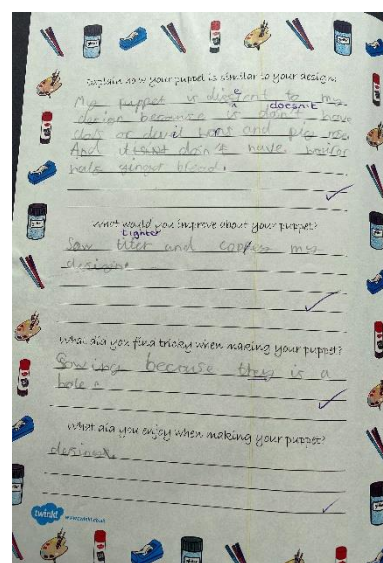 Explain how your puppet is similar to your design:
My puppet is diserent to my
doesn't
design because is don't have
or devil and pig
And it don't have
ginger bread.
What would you improve about your puppet?
tighter
Sow titer and my
desigine
What did you find tricky when making your puppet?
Sowing because they is a
hole
What did you enjoy when making your puppet?
twinkl